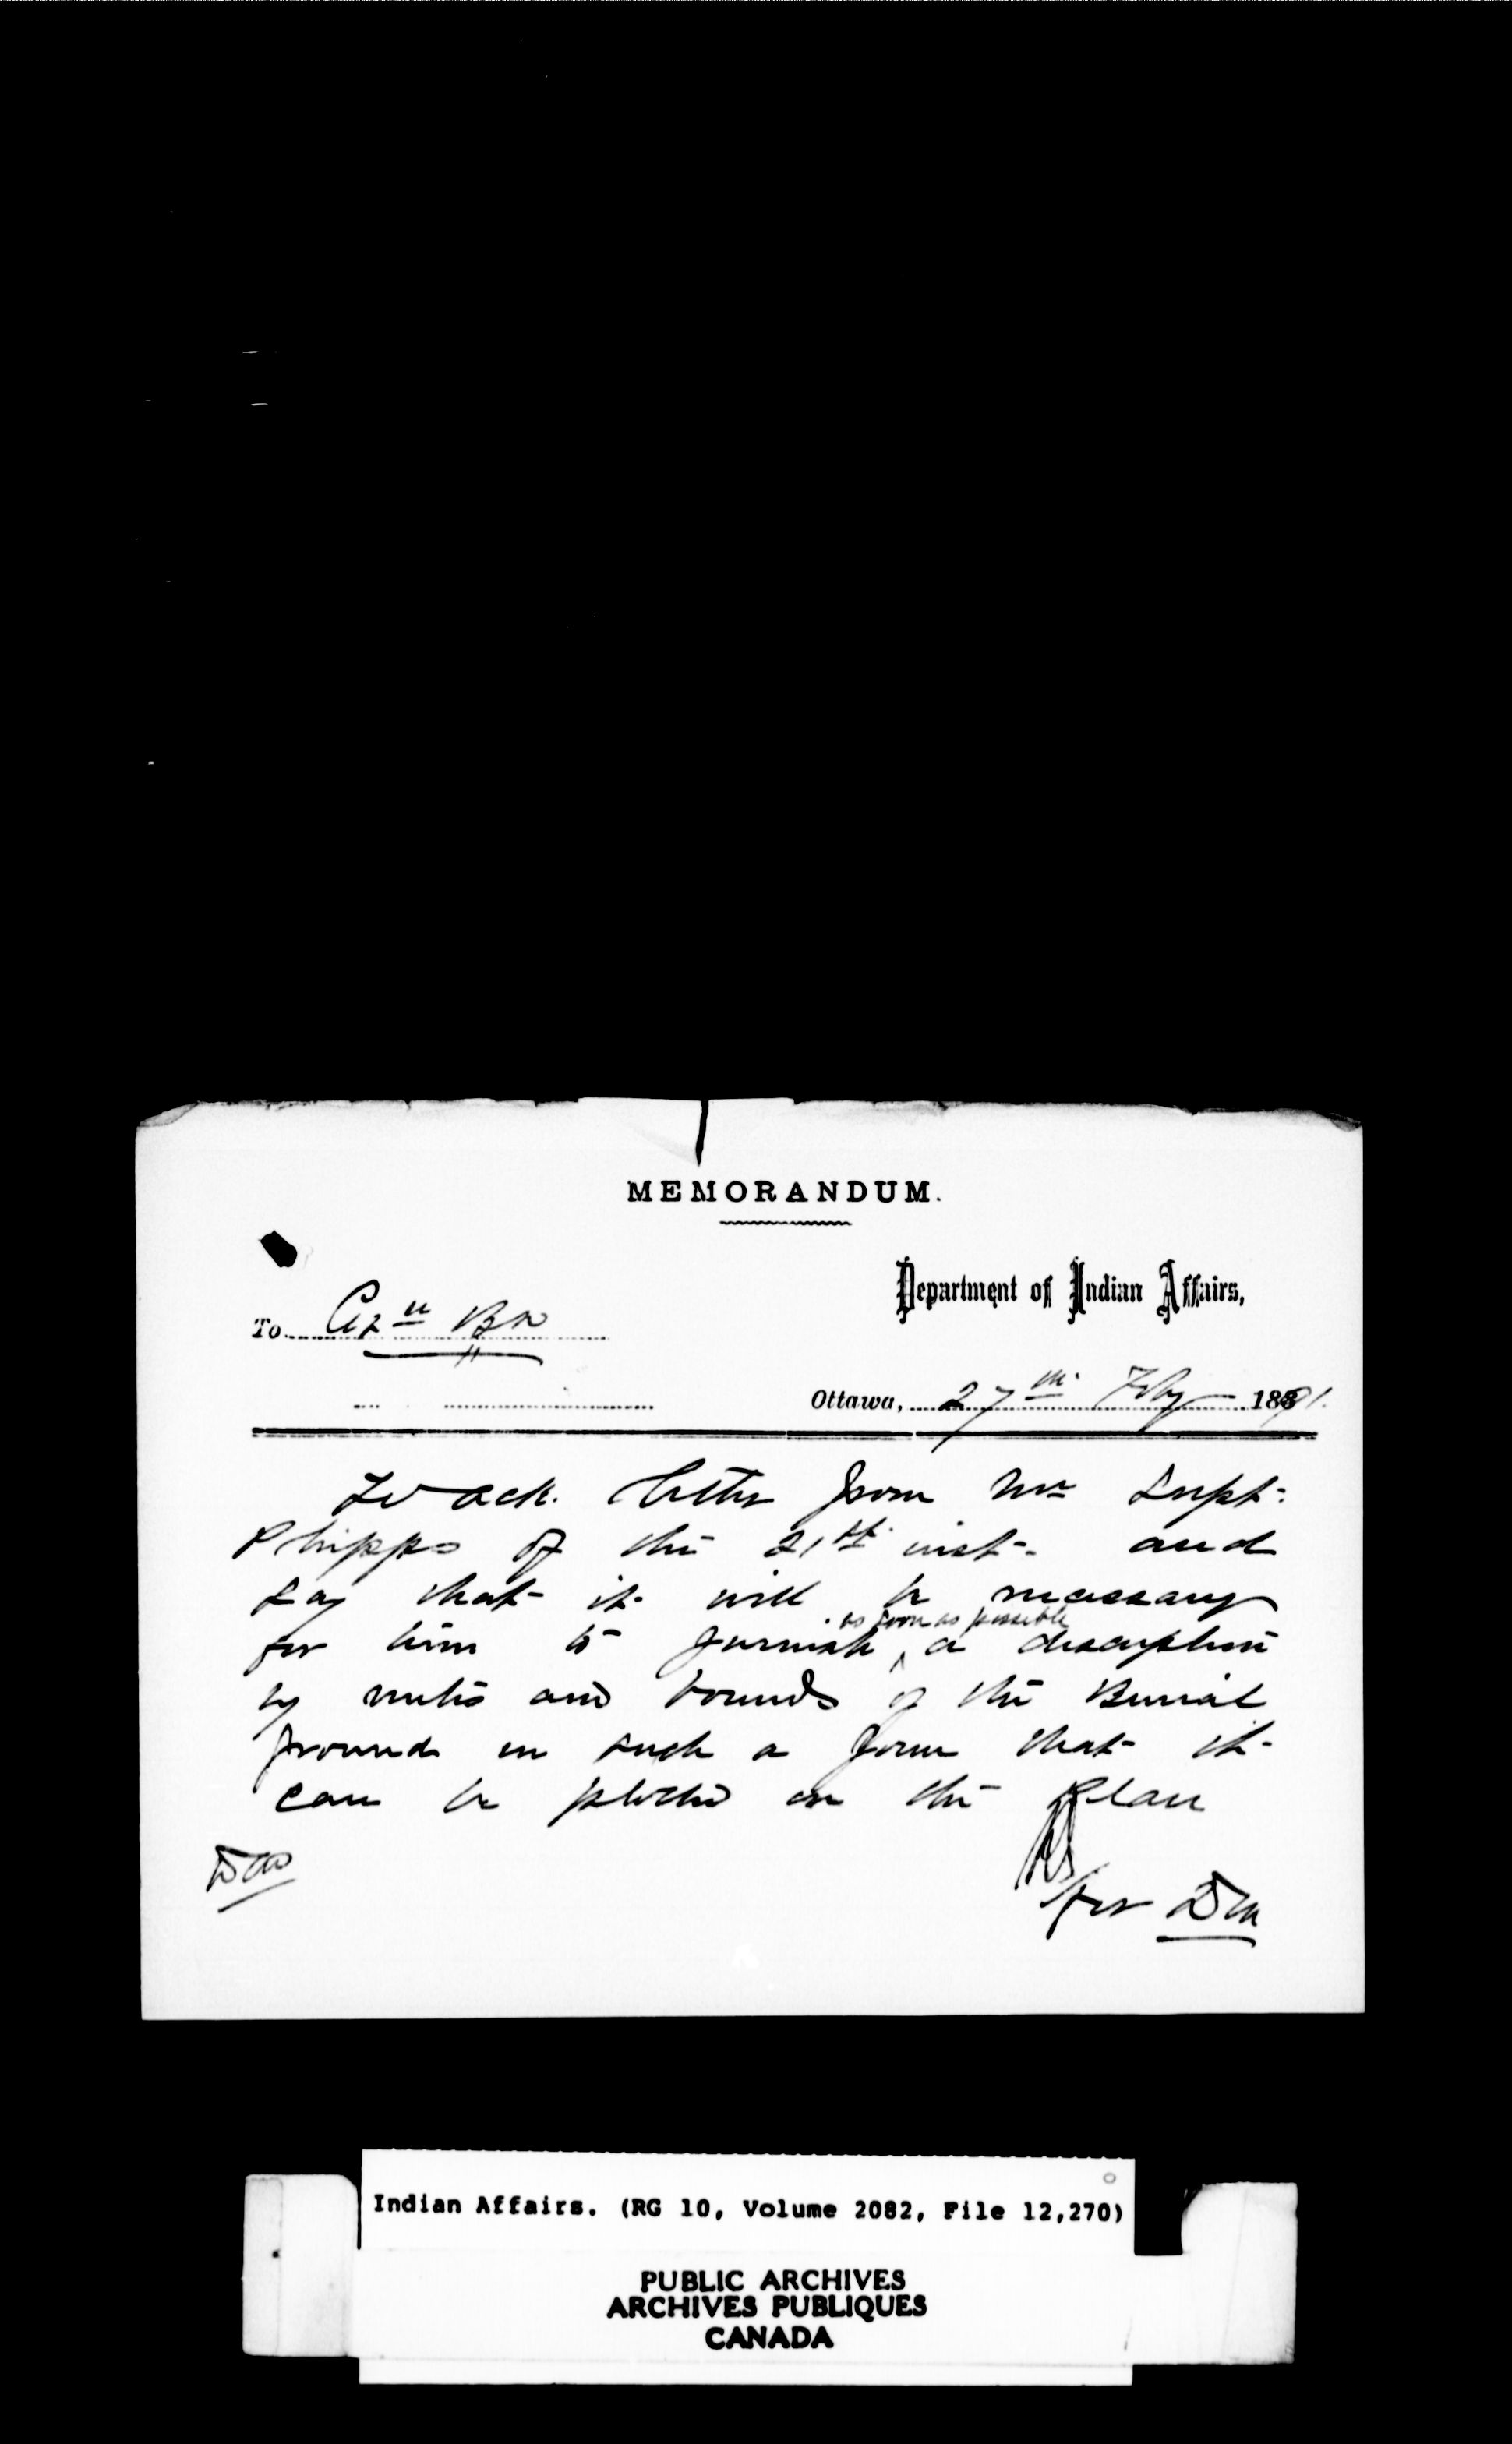 MEMORANDUM.
Department of Indian Affairs,
To
Ottawa, 27th Feby 1891.
To ack. letter from Mr Supt.
Phipps of the 21st inst. and
say that it will be necessary
for him to furnish as soon as possible a description
by metes and bounds of the Burial
ground in such a form that it
can be plotted on the Plan
for DM
Indian Affairs. (RG 10, Volume 2082, File 12,270)
PUBLIC ARCHIVES
ARCHIVES PUBLIQUES
CANADA